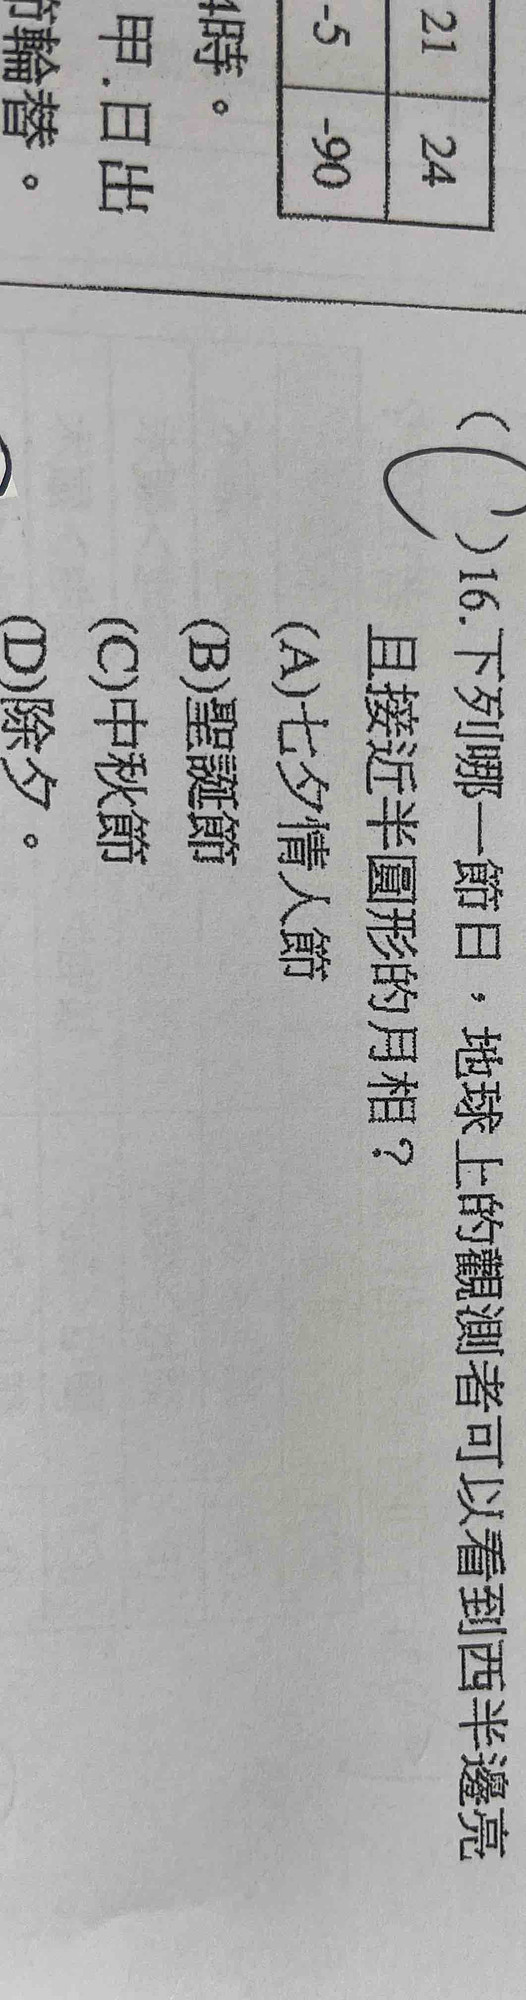 21 24
-5 -90
時。
甲.日出
輪替。
(C)16.下列哪一節日，地球上的觀測者可以看到西半邊亮
且接近半圓形的月相？
(A)七夕情人節
(B)聖誕節
(C)中秋節
(D)除夕。